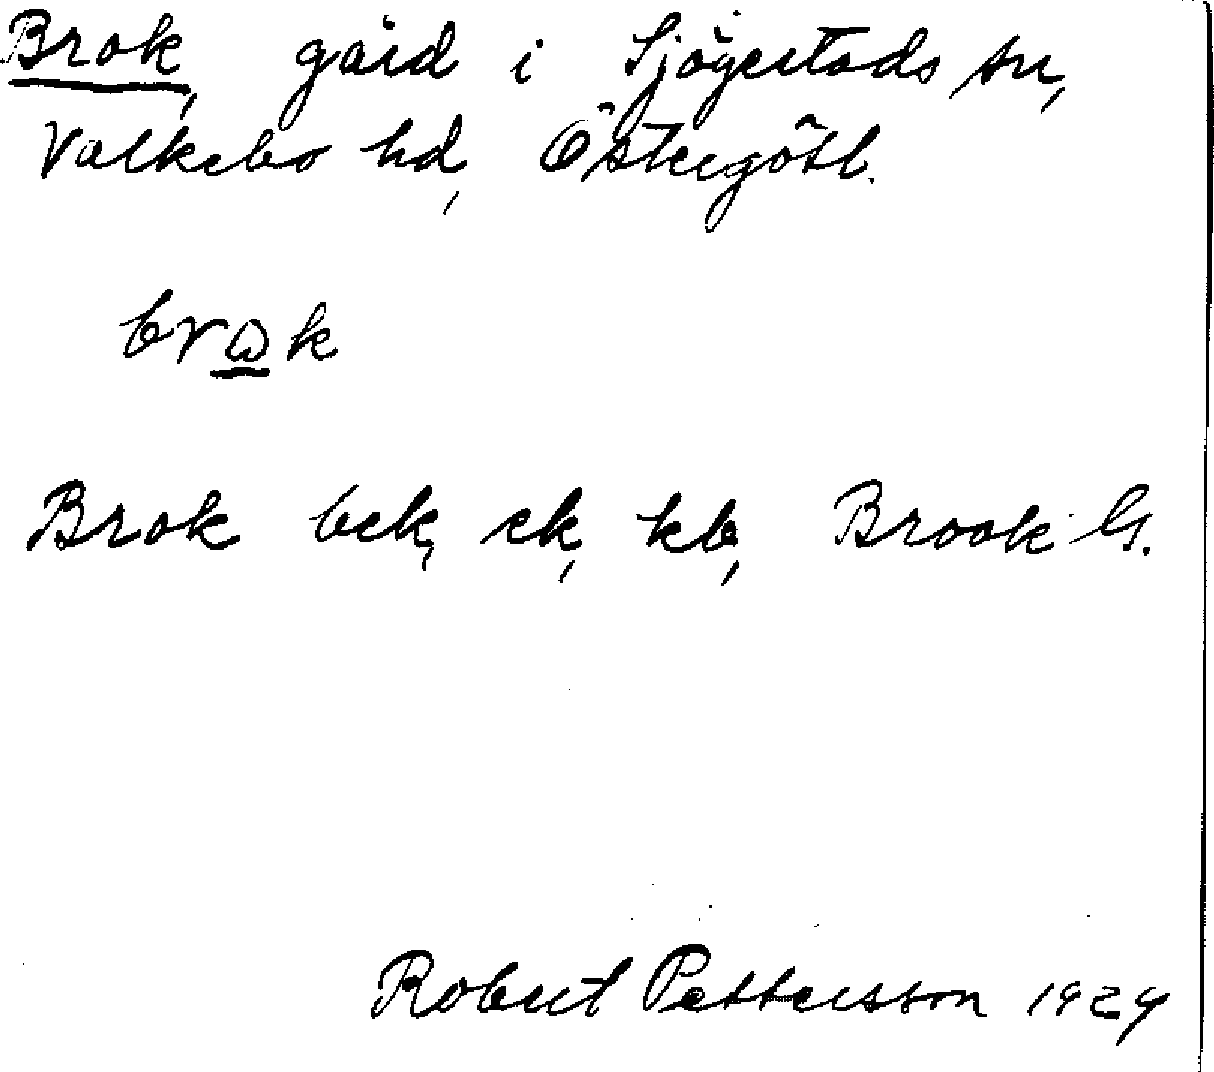 Brok, gård i Sjögestads sn,
Valkebo hd, Östergötl.
brωk
Brok bek, ek, kb, Brook G.
Robert Pettersson 1924